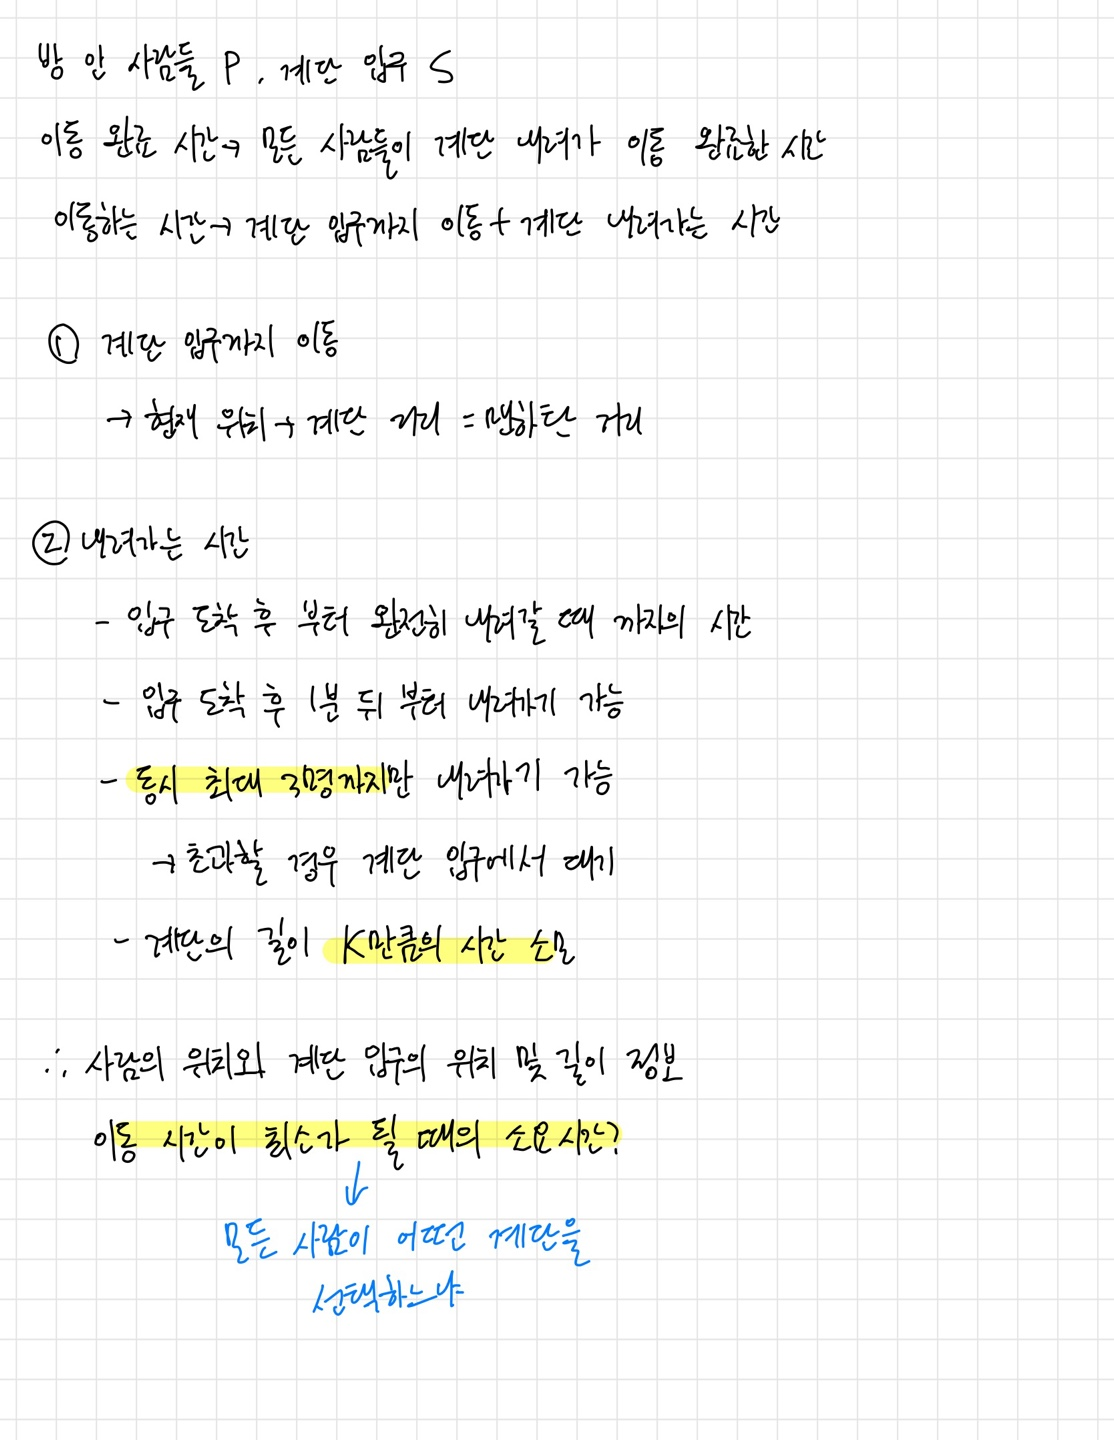 방 안 사람들 P, 계단 입구 S
이동 완료 시간→ 모든 사람들이 계단 내려가 이동 완료한 시간
이동하는 시간→ 계단 입구까지 이동 + 계단 내려가는 시간
① 계단 입구까지 이동
→ 현재 위치 → 계단 거리 = 맨하탄 거리
② 내려가는 시간
- 입구 도착 후 부터 완전히 내려갈 때 까지의 시간
- 입구 도착 후 1분 뒤 부터 내려가기 가능
- 동시 최대 3명까지만 내려가기 가능
→ 초과할 경우 계단 입구에서 대기
- 계단의 길이 K만큼의 시간 소모
∴ 사람의 위치와 계단 입구의 위치 및 길이 정보
이동 시간이 최소가 될 때의 소요시간?
↓
모든 사람이 어떤 계단을
선택하느냐